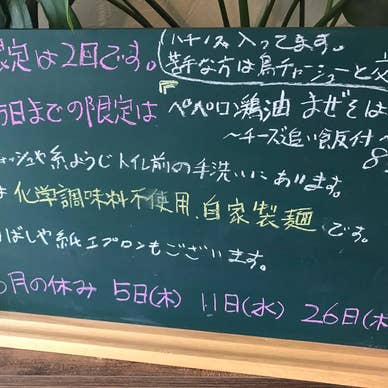 限定は2回です。
ハチノス入ってます。
苦手な方は鳥チャーシューと交
5日までの限定は
ペペロ鶏油 まぜそば
～チーズ追い飯付
8
ティッシュや糸ようじトイレ前の手洗いにあります。
は化学調味料不使用、自家製麺です。
ばしや紙エプロンもございます。
月の休み 5日(木) 11日(水) 26日(木